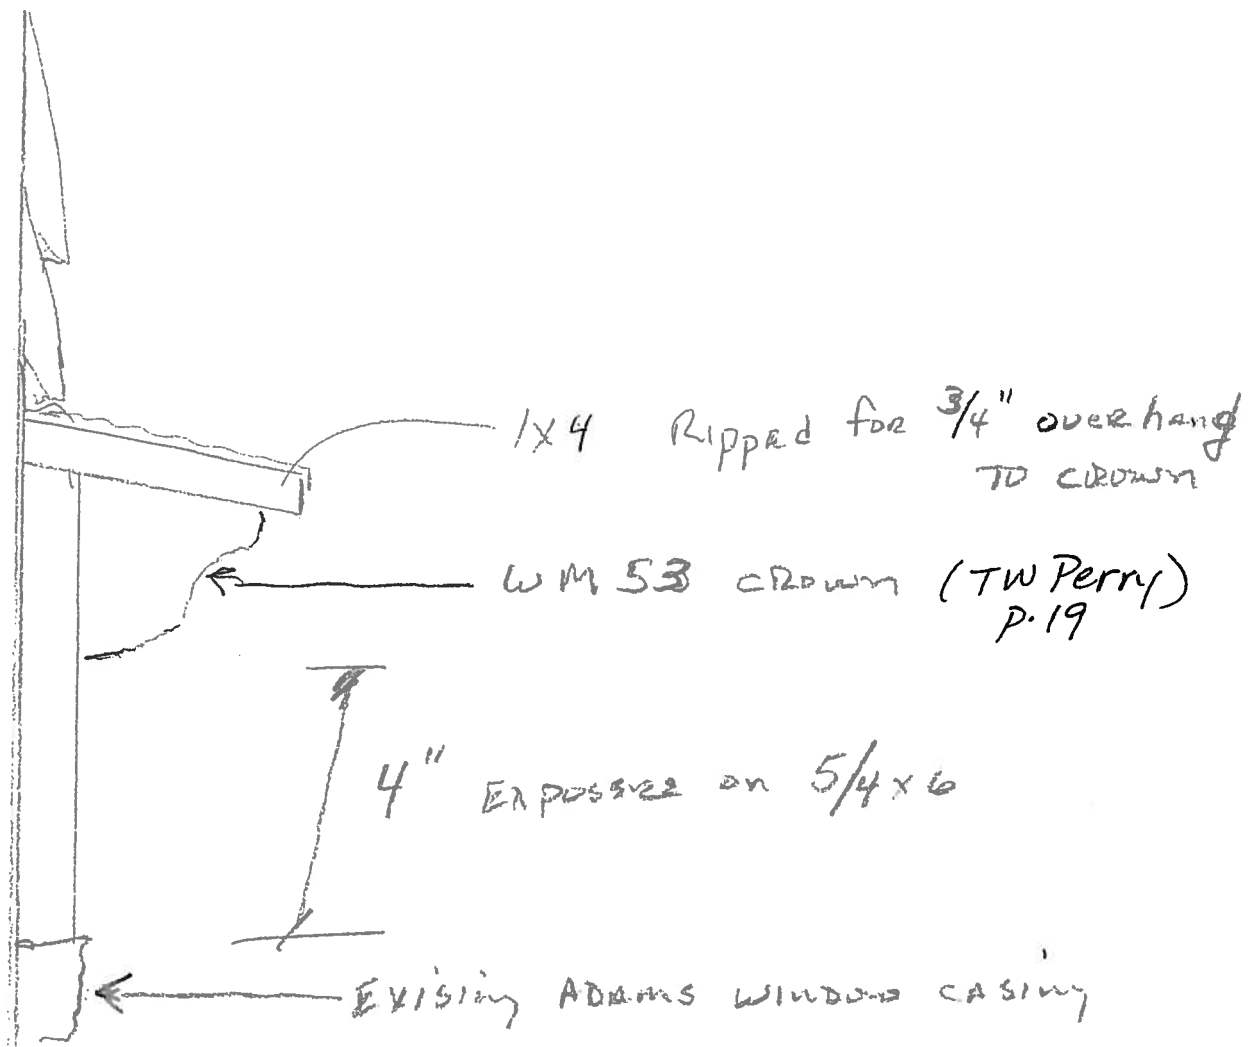 1x4 Ripped for 3/4" overhang
TO CROWN
WM 53 CROWN (TW Perry)
P. 19
4" Exposure on 5/4 x 6
Exising ADAMS WINDOW CASING